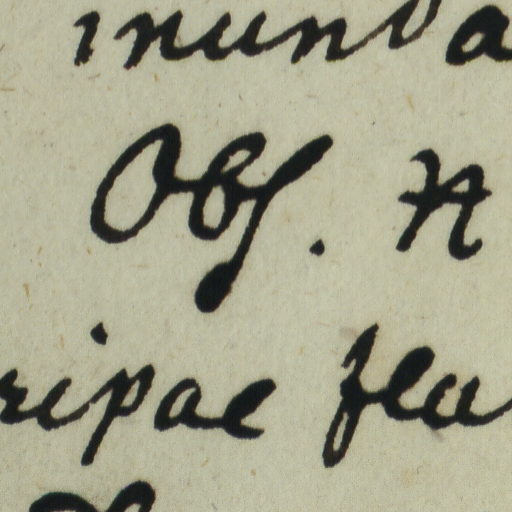 inunda
Obſ. H
ripae flu